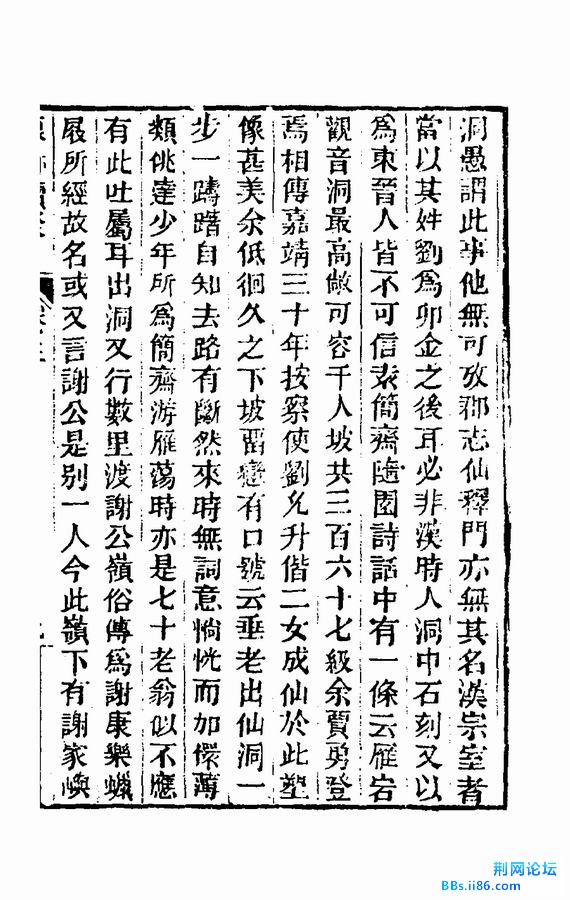 洞愚謂此事他無可攷郡志仙釋門亦無其名漢宗室者
當以其姓劉為卯金之後耳必非漢時人洞中石刻又以
為東晉人皆不可信袁簡齋隨園詩話中有一條云雁宕
觀音洞最高敞可容千人坡共三百六十七級余賈勇登
焉相傳嘉靖三十年按察使劉允升偕二女成仙於此塑
像甚美余低徊久之下坡畱戀有口號云垂老出仙洞一
步一躊躇自知去路有斷然來時無詞意惝恍而加儇薄
類佻達少年所為簡齋游雁蕩時亦是七十老翁似不應
有此吐屬耳出洞又行數里渡謝公嶺俗傳為謝康樂蠟
屐所經故名或又言謝公是別一人今此嶺下有謝家嶴
荆网论坛
BBs.ii86.com